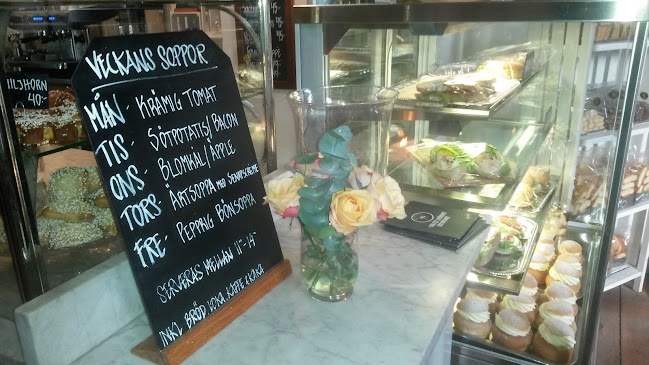 VECKANS SOPPOR
MÅN - KRÄMIG TOMAT
TIS - SÖTPOTATIS/BACON
ONS - BLOMKÅL/ÄPPLE
TORS - ÄRTSOPPA MED SENAPSCRÈME
FRE - PEPPRIG BÖNSOPPA
SERVERAS MELLAN 11-14
INKL BRÖD, KAFFE & KAKA
40:-